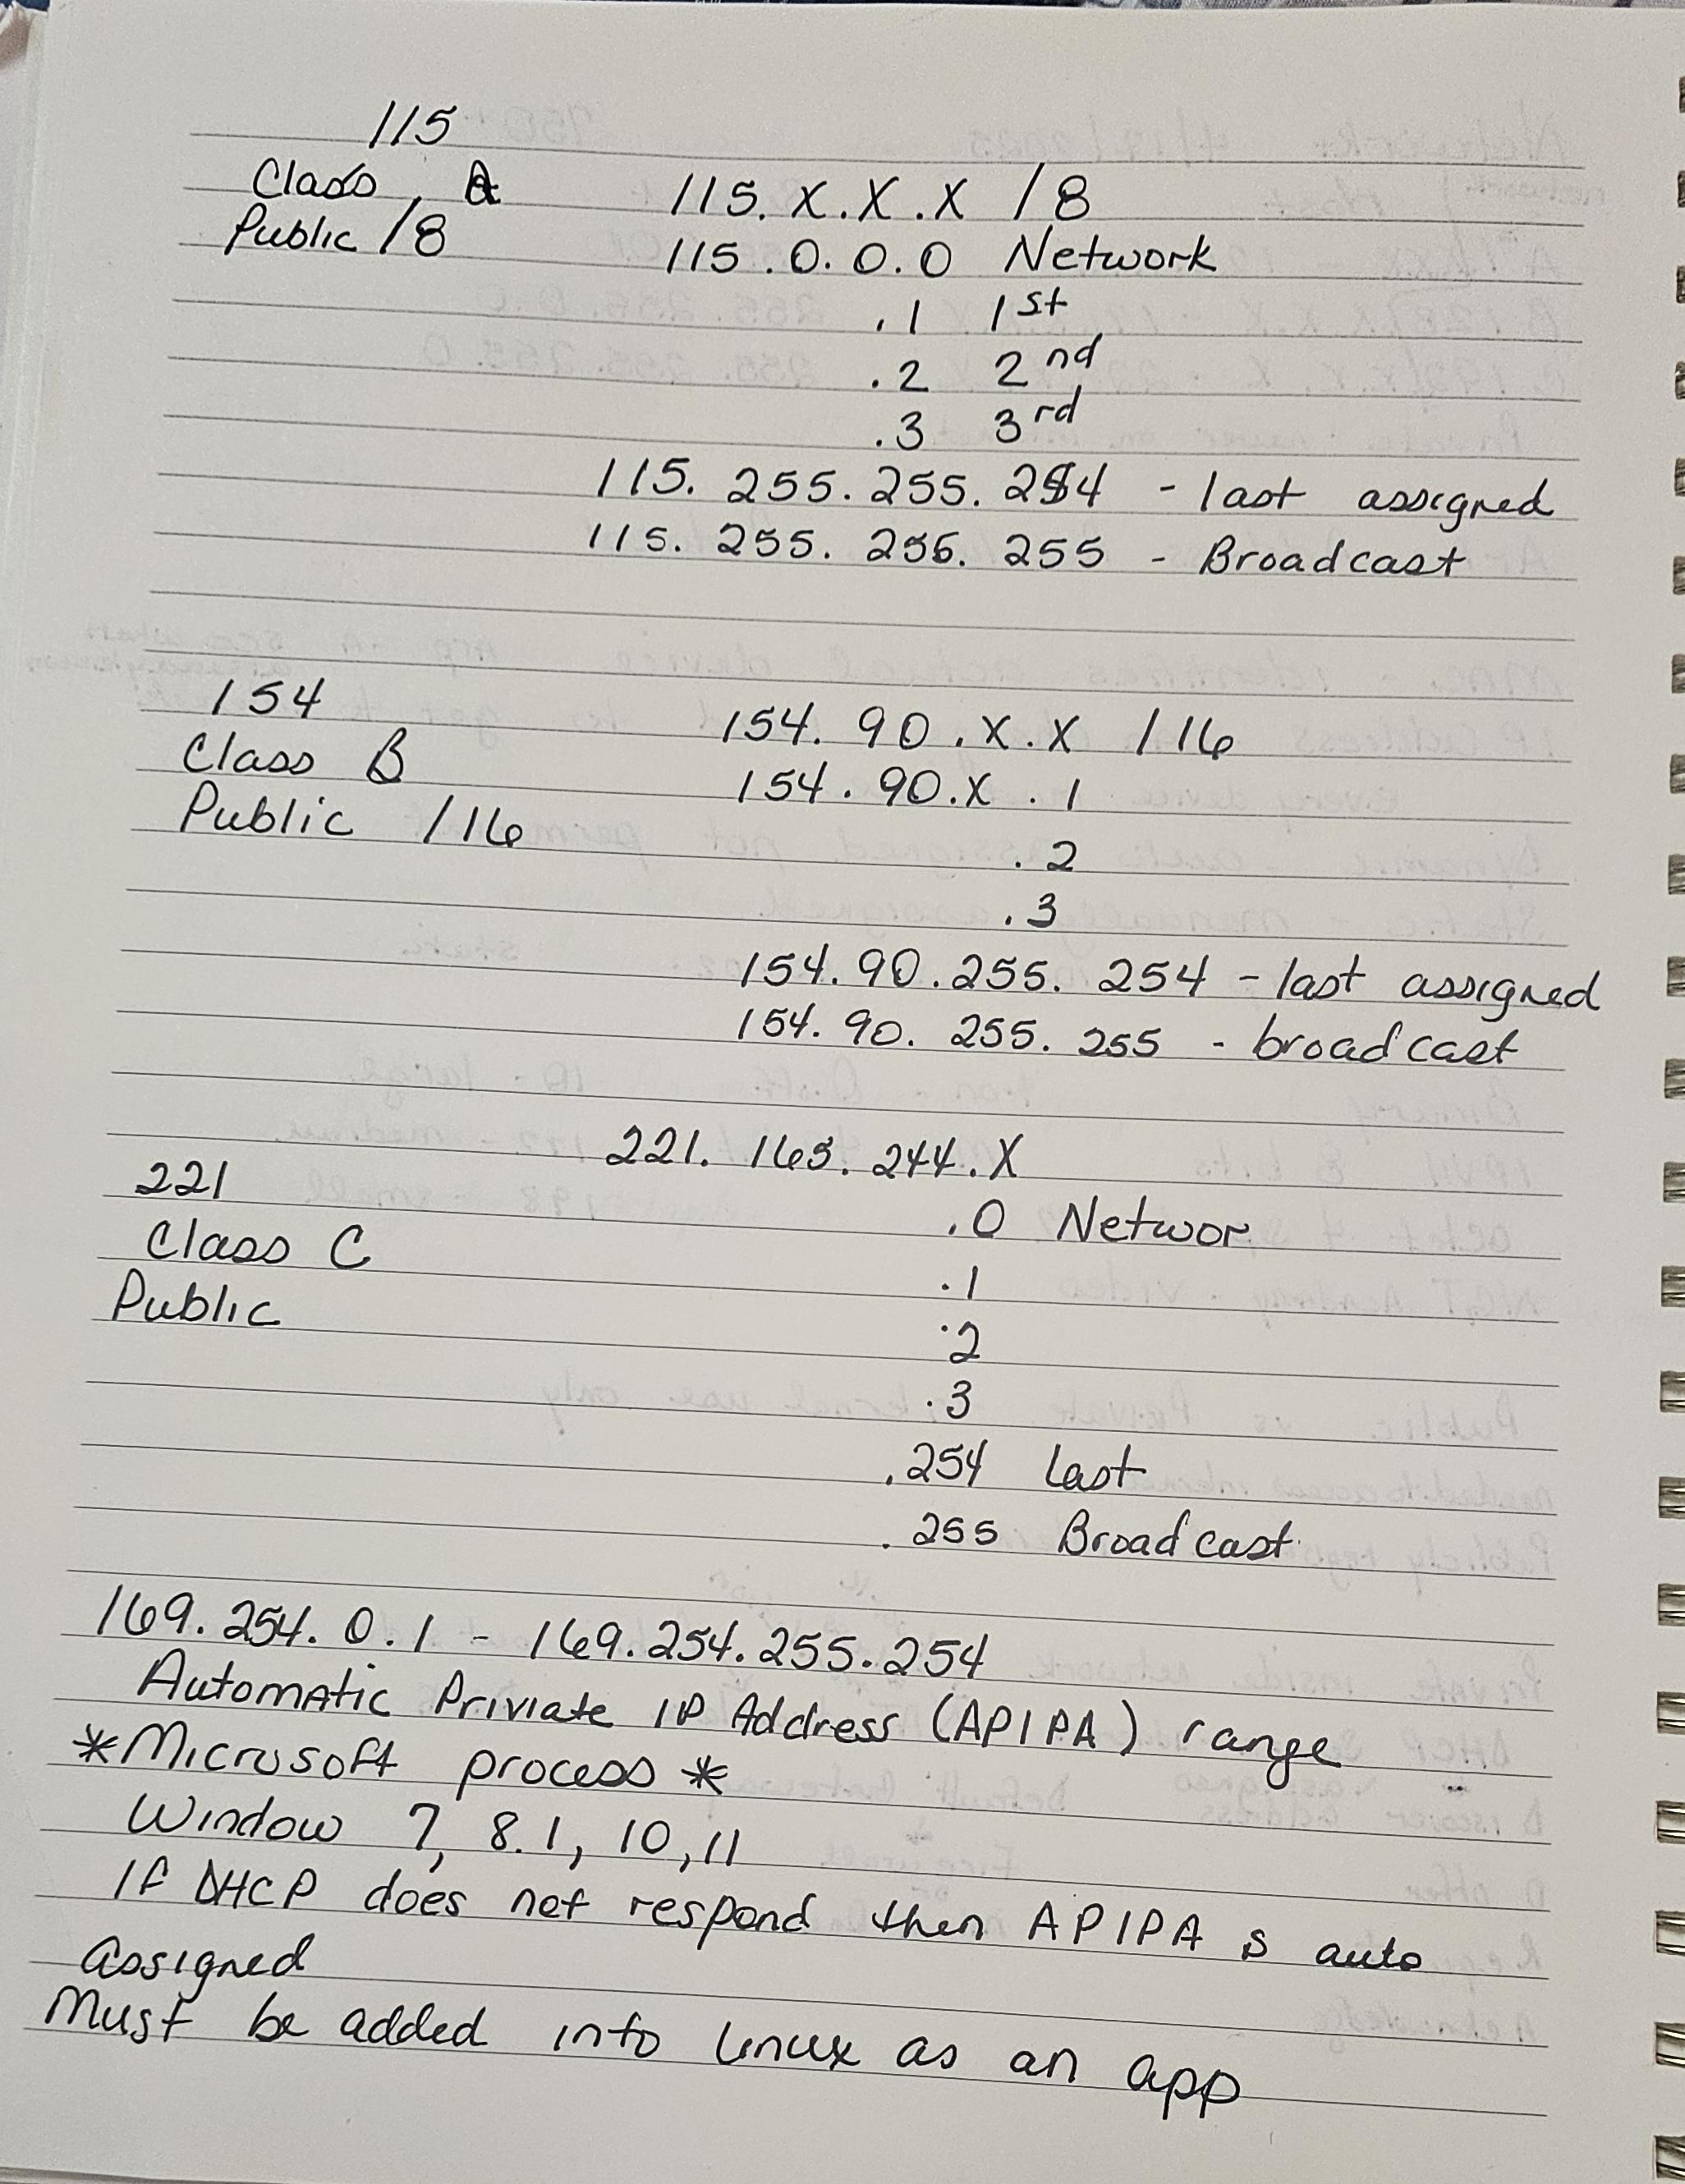 115
Class A 115.X.X.X /8
Public /8 115.0.0.0 Network
.1 1st
.2 2nd
.3 3rd
115.255.255.254 - last assigned
115.255.255.255 - Broadcast
154 154.90.X.X /16
Class B 154.90.X.1
Public /16 .2
.3
154.90.255.254 - last assigned
154.90.255.255 - broadcast
221.163.244.X
221 .0 Networ
Class C .1
Public .2
.3
.254 last
.255 Broadcast
169.254.0.1 - 169.254.255.254
Automatic Priviate IP Address (APIPA) range
*Microsoft process*
Window 7, 8.1, 10, 11
If DHCP does not respond then APIPA s auto
assigned
Must be added into linux as an app